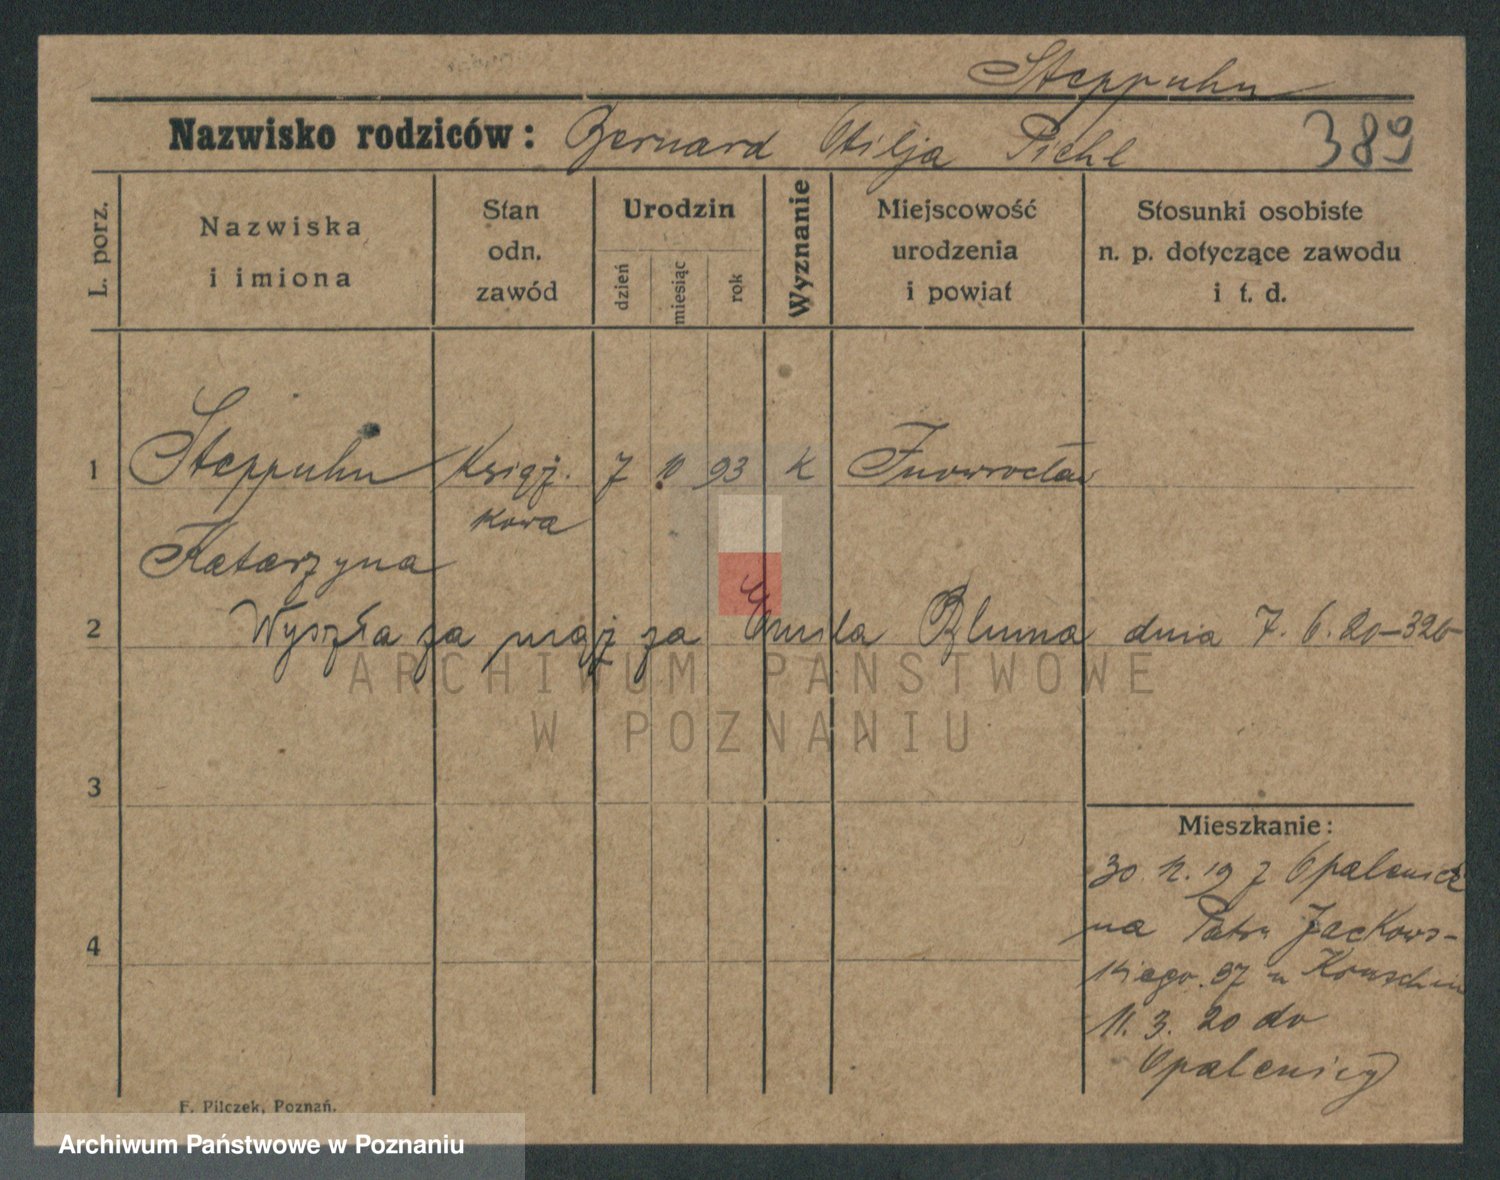 Steppuhn
Nazwisko rodziców: Bernard Otilja Pichl 389
L. porz.
Nazwiska
i imiona
Stan
odn.
zawód
Urodzin
dzień
miesiąc
rok
Wyznanie
Miejscowość
urodzenia
i powiat
Stosunki osobiste
n. p. dotyczące zawodu
i t. d.
1 Steppuhn Książ. 7 10 93 K Inowrocław
kowa
Katarzyna
2 Wyszła za mąż za Emila Bluma dnia 7. 6. 20-326
ARCHIWUM PAŃSTWOWE
W POZNANIU
3
Mieszkanie:
30 12. 19 z Opalenicz
na Patr. Jackows-
4
kiego. 37 u
11. 3. 20 do
Opalenicy
F. Pilczek, Poznań.
Archiwum Państwowe w Poznaniu